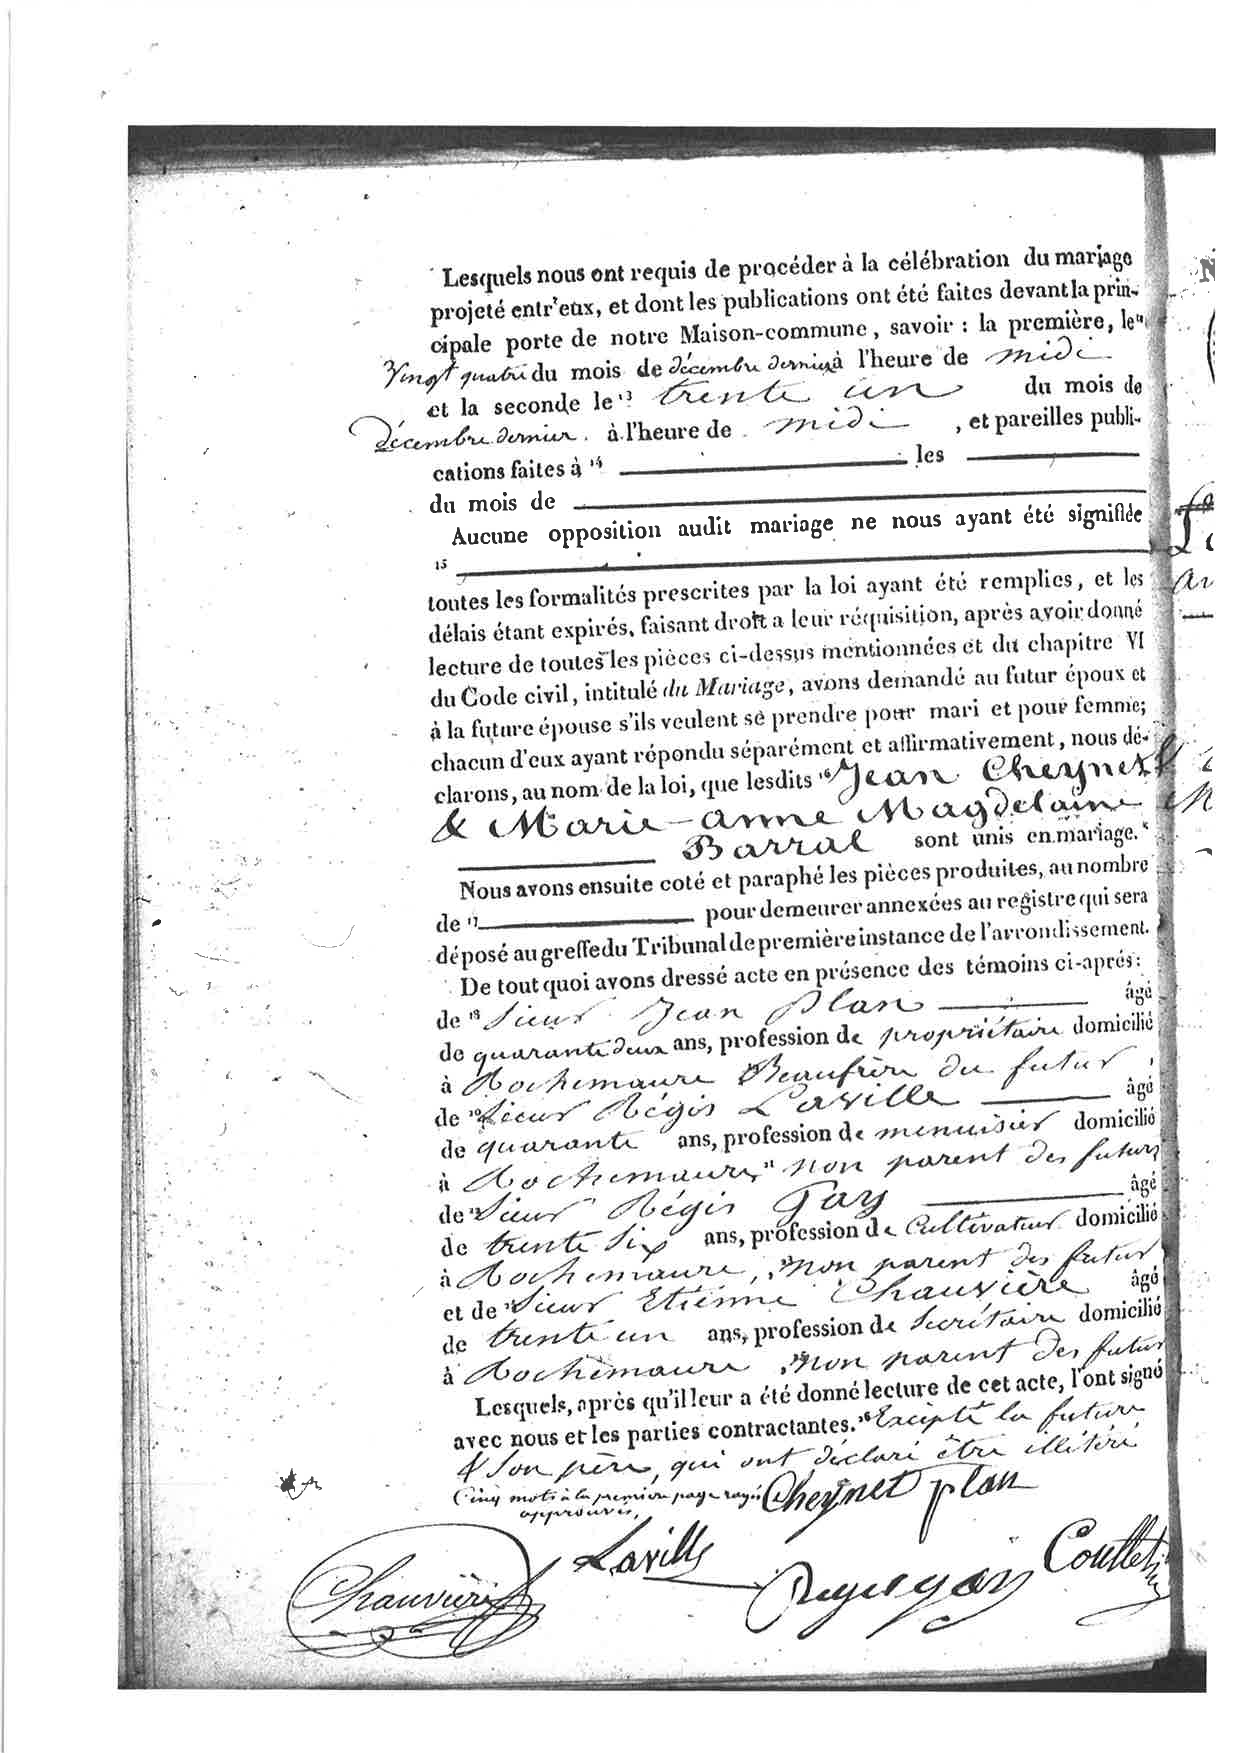 Lesquels nous ont requis de procéder à la célébration du mariage
projeté entr'eux, et dont les publications ont été faites devant la prin-
cipale porte de notre Maison-commune, savoir : la première, le
Vingt quatre du mois de décembre dernier à l'heure de midi
et la seconde le 13 trente un du mois de
décembre dernier à l'heure de midi , et pareilles publi-
cations faites à 14 les
du mois de
Aucune opposition audit mariage ne nous ayant été signifiée
15
toutes les formalités prescrites par la loi ayant été remplies, et les
délais étant expirés, faisant droit a leur réquisition, après avoir donné
lecture de toutes les pièces ci-dessus mentionnées et du chapitre VI
du Code civil, intitulé du Mariage, avons demandé au futur époux et
à la future épouse s'ils veulent se prendre pour mari et pour femme;
chacun d'eux ayant répondu séparément et affirmativement, nous dé-
clarons, au nom de la loi, que lesdits 16 Jean Cheynet
& Marie-anne Magdelaine
Barral sont unis en mariage.
Nous avons ensuite coté et paraphé les pièces produites, au nombre
de 17 pour demeurer annexées au registre qui sera
déposé au greffe du Tribunal de première instance de l'arrondissement.
De tout quoi avons dressé acte en présence des témoins ci-après:
de 18 Sieur Jean Plan âgé
de quarante deux ans, profession de propriétaire domicilié
à Rochemaure Beaufrère du futur
de Sieur Régis Laville âgé
de quarante ans, profession de menuisier domicilié
à Rochemaure non parent des futurs
de Sieur Régis Gay âgé
de trente six ans, profession de Cultivateur domicilié
à Rochemaure, non parent des futur
et de Sieur Etienne Chauvière âgé
de trente un ans, profession de Secrétaire domicilié
à Rochemaure non parent des futur
Lesquels, après qu'il leur a été donné lecture de cet acte, l'ont signé
avec nous et les parties contractantes. Excepté la future
& Son père, qui ont déclaré être illitéré
Cinq mots à la première page rayés Cheynet plan
approuvés,
Laville Coullet
Chauvière